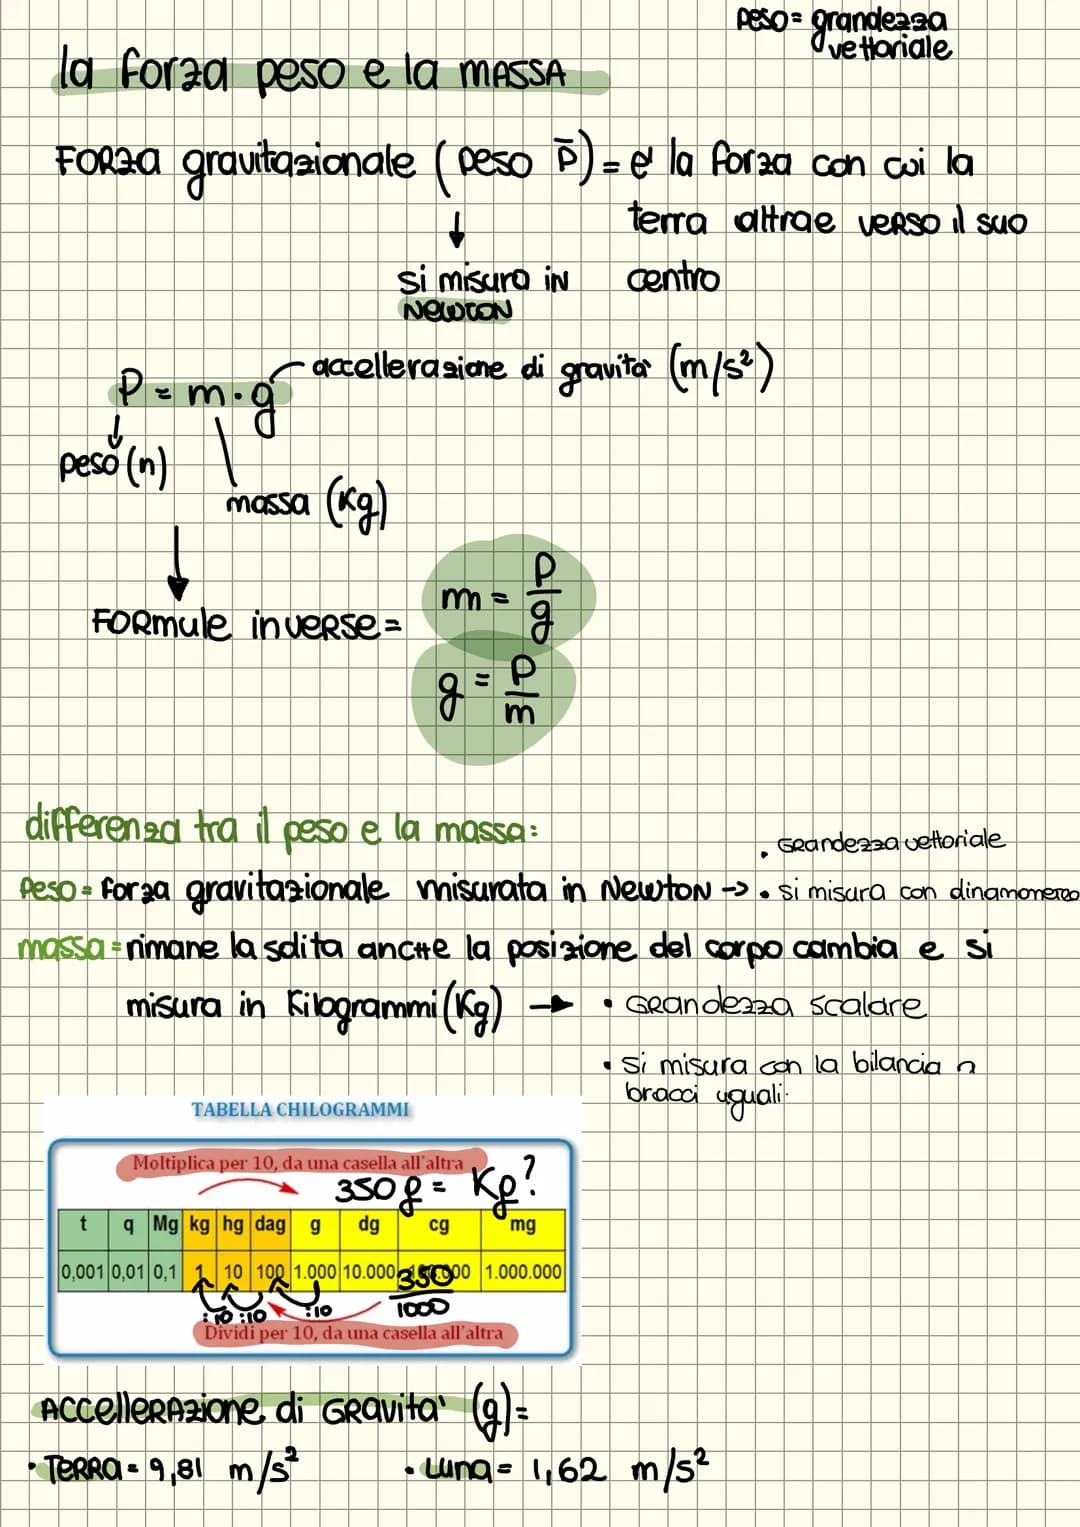 peso= grandezza
vettoriale
la forza peso e la MASSA
FORZa gravitazionale ( peso P̄) = e' la forza con cui la
terra attrae verso il suo
centro
si misura in
Newton
accellerazione di gravita' (m/s²)
P = m · g
peso (n)
massa (Kg)
FORmule inverse =
m = P/g
g = P/m
differenza tra il peso e la massa:
• Grandezza vettoriale
Peso = forza gravitazionale misurata in Newton -> • si misura con dinamometro
massa = rimane la sdita anche la posizione del corpo cambia e si
misura in Kilogrammi (Kg) → • Grandezza scalare
• si misura con la bilancia a
bracci uguali.
TABELLA CHILOGRAMMI
Moltiplica per 10, da una casella all'altra
350 g = Kg?
t q Mg kg hg dag g dg cg mg
0,001 0,01 0,1 1 10 100 1.000 10.000 100.000 1.000.000
350/1000
:10 :10 :10
Dividi per 10, da una casella all'altra
ACCelleRAzione di GRavita' (g)=
• TeRRa = 9,81 m/s²
• Luna = 1,62 m/s²